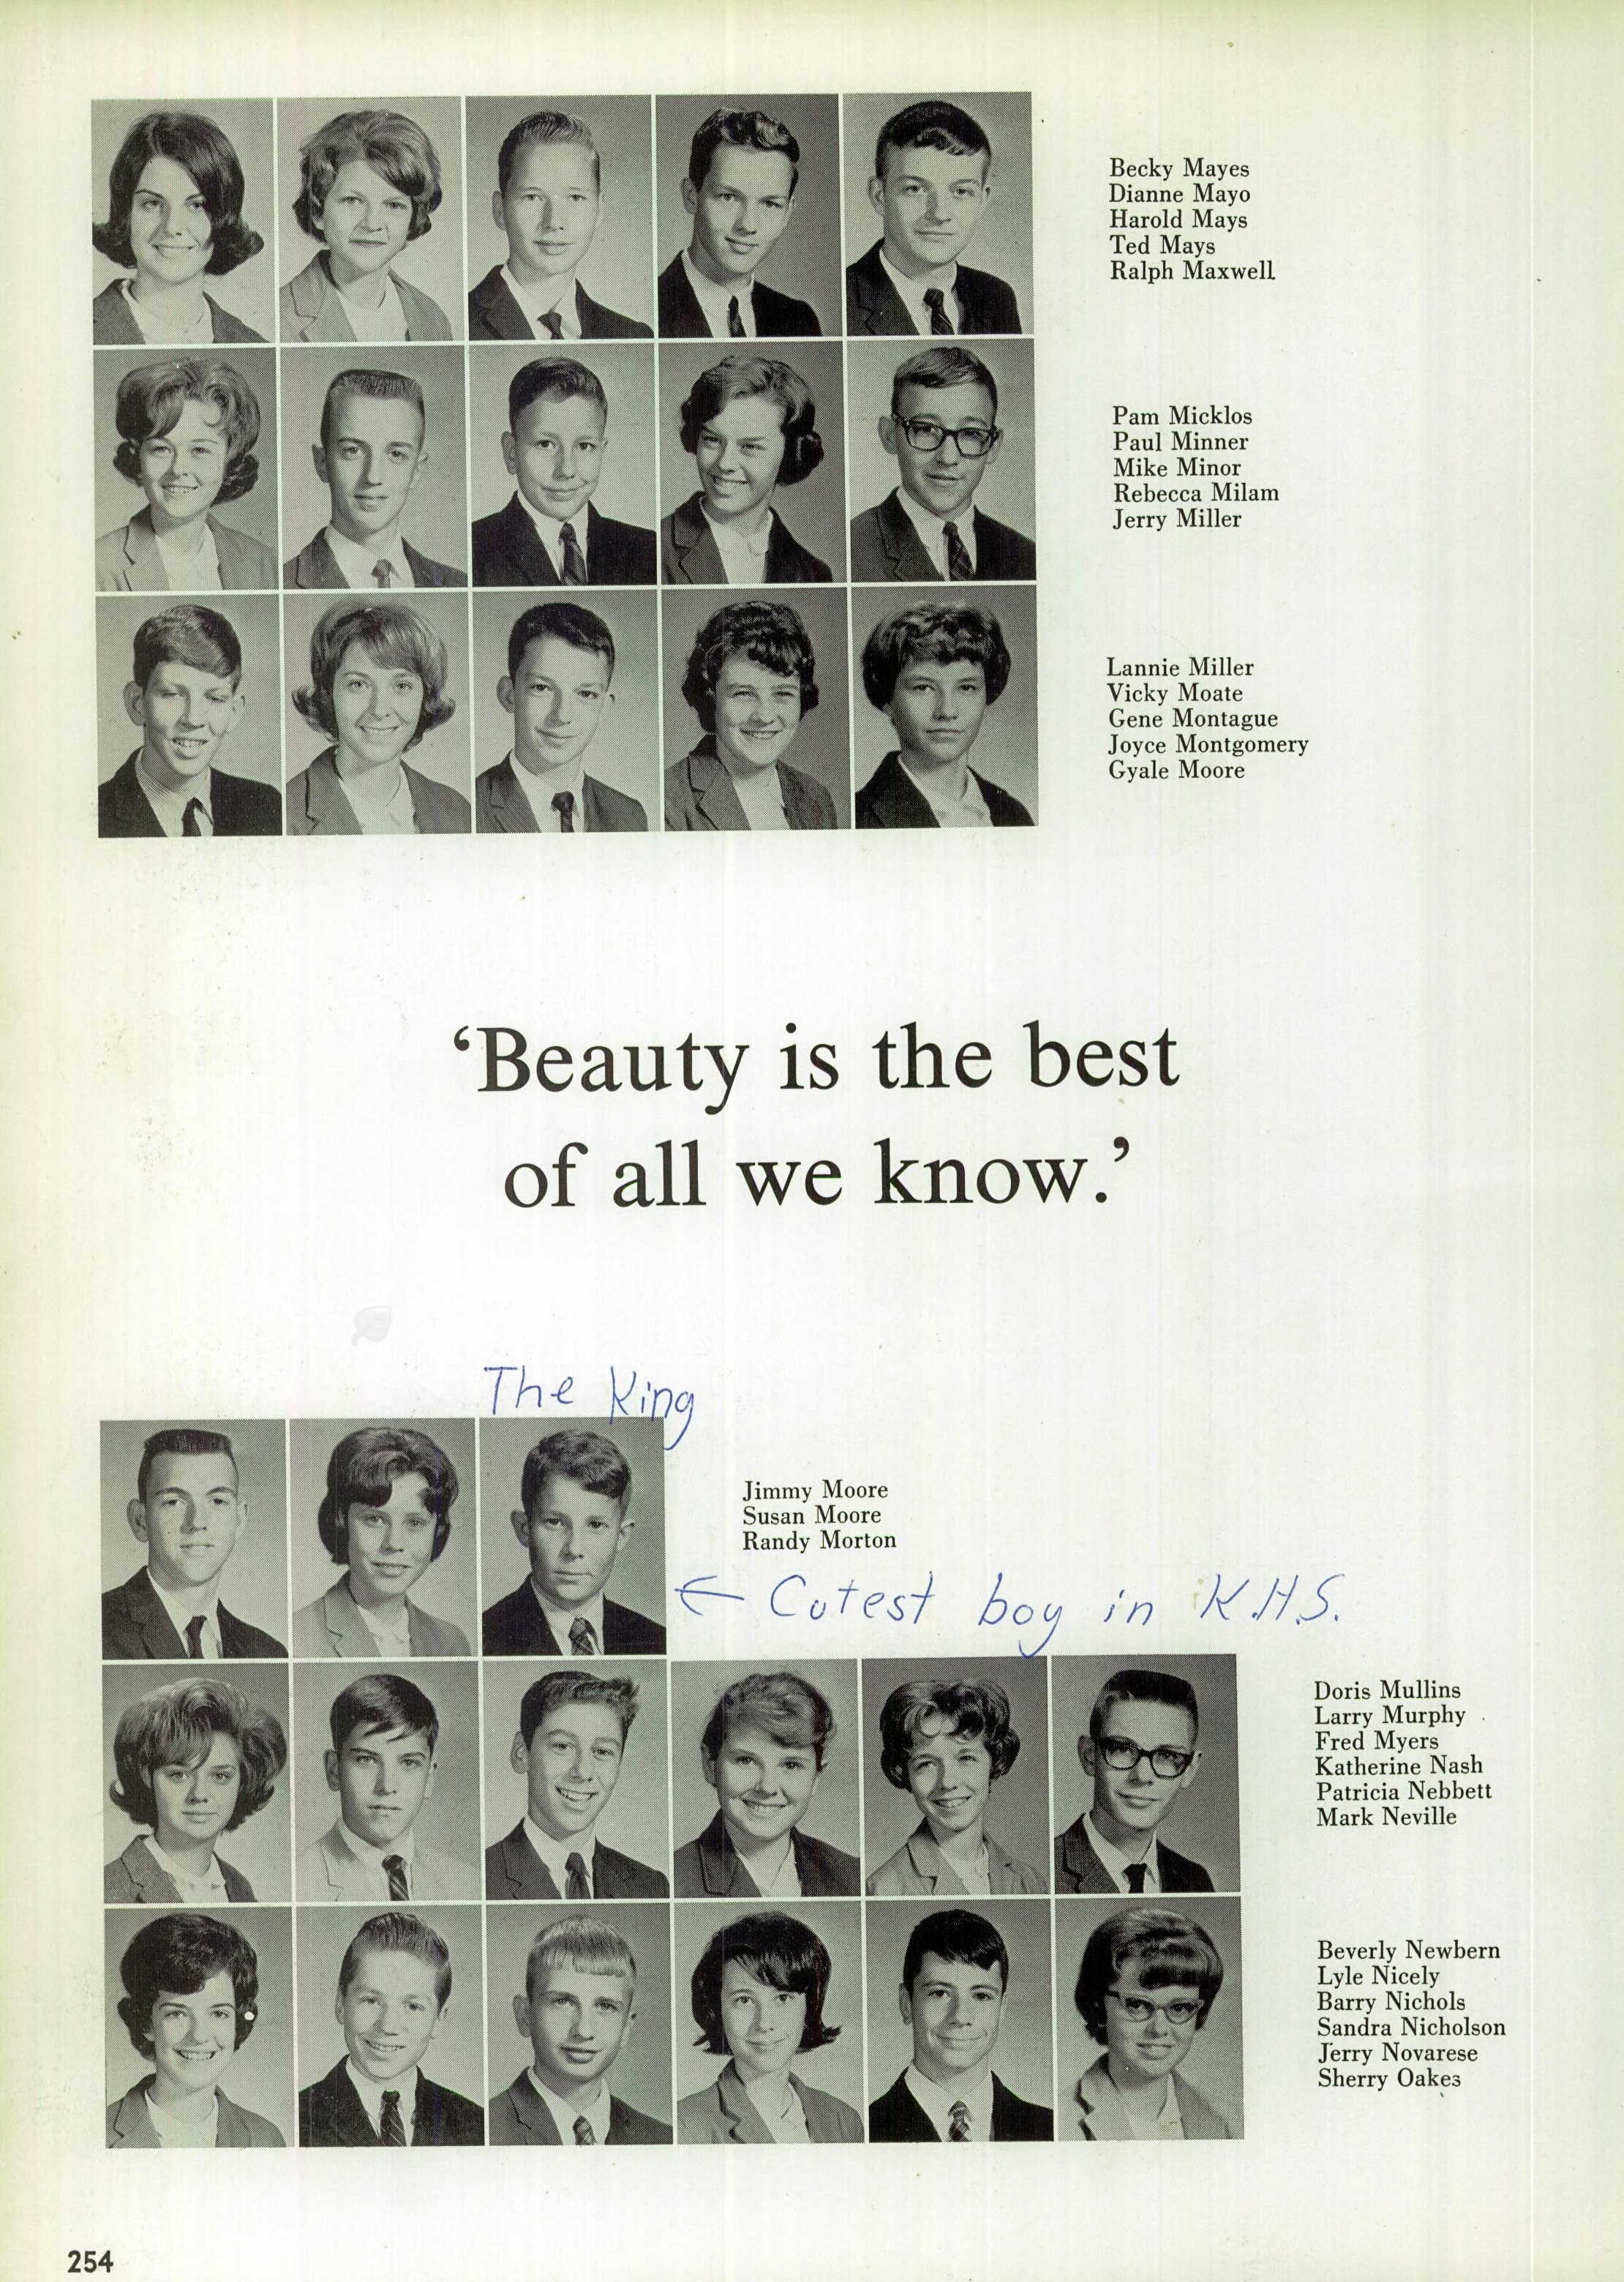 Becky Mayes
Dianne Mayo
Harold Mays
Ted Mays
Ralph Maxwell
Pam Micklos
Paul Minner
Mike Minor
Rebecca Milam
Jerry Miller
Lannie Miller
Vicky Moate
Gene Montague
Joyce Montgomery
Gyale Moore
‘Beauty is the best
of all we know.’
The King
Jimmy Moore
Susan Moore
Randy Morton
← Cutest boy in K.H.S.
Doris Mullins
Larry Murphy
Fred Myers
Katherine Nash
Patricia Nebbett
Mark Neville
Beverly Newbern
Lyle Nicely
Barry Nichols
Sandra Nicholson
Jerry Novarese
Sherry Oakes
254